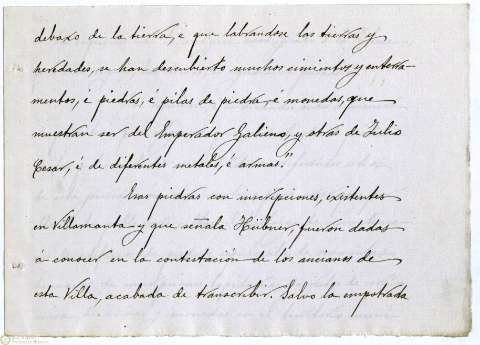 debaxo de la tierra, é que labrandose las tierras y
heredades, se han descubierto muchos cimientos y enterra-
mentos, é piedras, é pilas de piedra, é monedas, que
muestran ser del Emperador Galieno, y otras de Julio
Cesar, é de diferentes metales, é armas."
Esas piedras con inscripciones, existentes
en Villamanta y que señala Hübner, fueron dadas
á conocer en la contestación de los ancianos de
esta Villa, acabada de transcribir. Salvo la empotrada